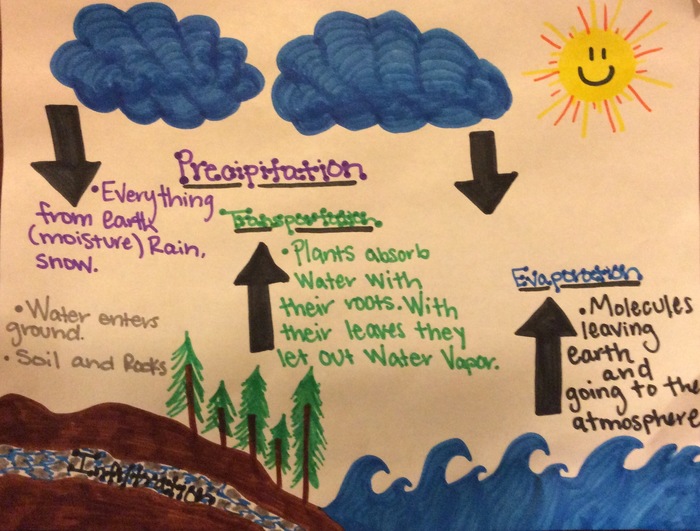 Precipitation
• Everything
from earth
(moisture) Rain,
snow.
Transpertation
• Plants absorb
Water with
their roots. With
their leaves they
let out Water Vapor.
Evaporation
• Molecules
leaving
earth
and
going to the
atmosphere
• Water enters
ground.
• Soil and Rocks
Infiltration